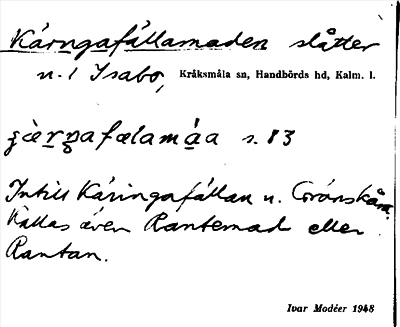 Käringafällamaden slåtter
u. i Ysabo, Kråksmåla sn, Handbörds hd, Kalm. l.
s. 83
Intill Käringafällan u. Grönskåra.
Kallas även Rantemad eller
Rantan.
Ivar Modéer 1948